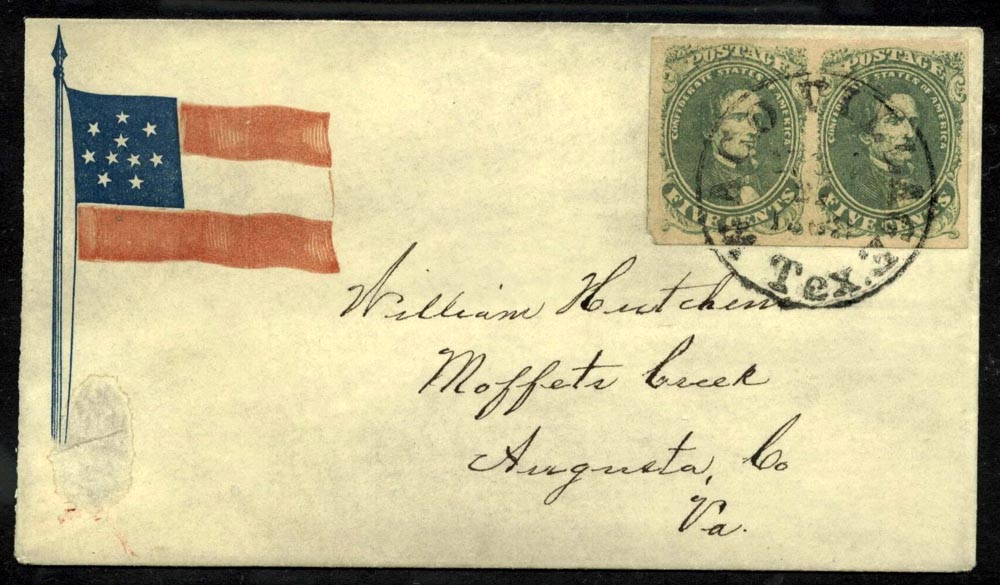 POSTAGE POSTAGE
CONFEDERATE STATES OF AMERICA CONFEDERATE STATES OF AMERICA
FIVE CENTS FIVE CENTS
Tex.
William Hutchens
Moffets Creek
Augusta, Co
Va.